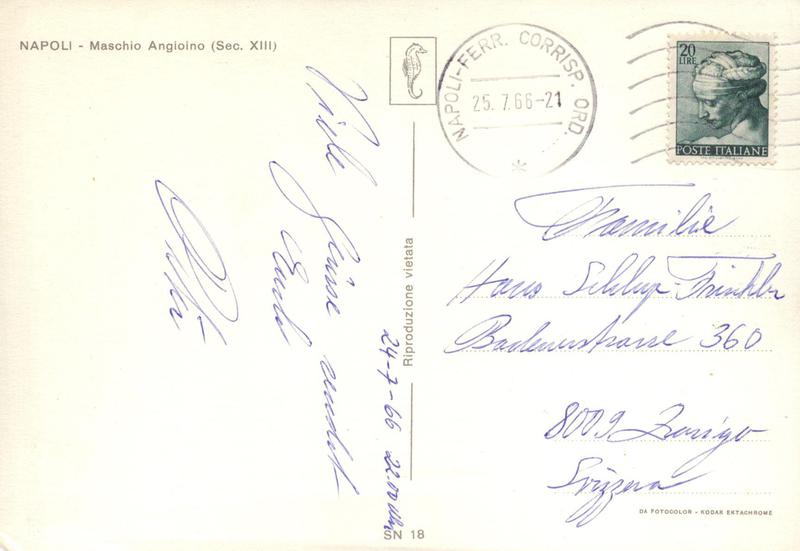 NAPOLI - Maschio Angioino (Sec. XIII)
Viele Grüsse
Euch
24-7-66 22.00 Uhr
Riproduzione vietata
SN 18
NAPOLI-FERR. CORRISP. ORD.
25. 7. 66-21
20
LIRE
POSTE ITALIANE
Familie
Hans
Badenerstrasse 360
8009 Zurigo
Svizzera
DA FOTOCOLOR - KODAK EKTACHROME